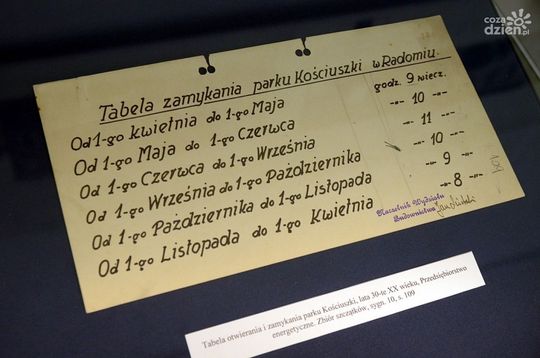 coza
dzien.pl
Tabela zamykania parku Kościuszki w Radomiu.
Od 1-go kwietnia do 1-go Maja godz. 9 wiecz.
Od 1-go Maja do 1-go Czerwca -"- 10 -"-
Od 1-go Czerwca do 1-go Września -"- 11 -"-
Od 1-go Września do 1-go Października -"- 10 -"-
Od 1-go Października do 1-go Listopada -"- 9 -"-
Od 1-go Listopada do 1-go Kwietnia -"- 8 -"-
Naczelnik Wydziału
Budownictwa
Tabela otwierania i zamykania parku Kościuszki, lata 30-te XX wieku, Przedsiębiorstwo
energetyczne. Zbiór szczątków, sygn. 10, s. 109